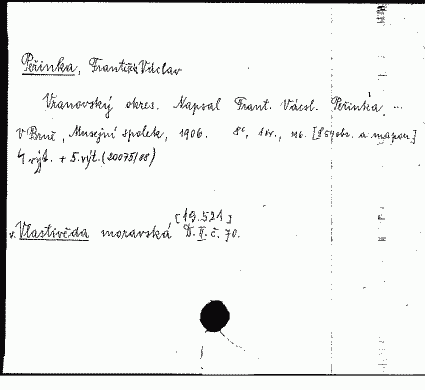 Peřinka, František Václav
Vranovský okres. Napsal Frant. Václ. Peřinka ...
V Brně, Musejní spolek, 1906. 8°, [254 obr. a mapou]
4 výt. + 5. výt. (20075/88)
[19.521]
v. Vlastivěda moravská D. II. č. 70.